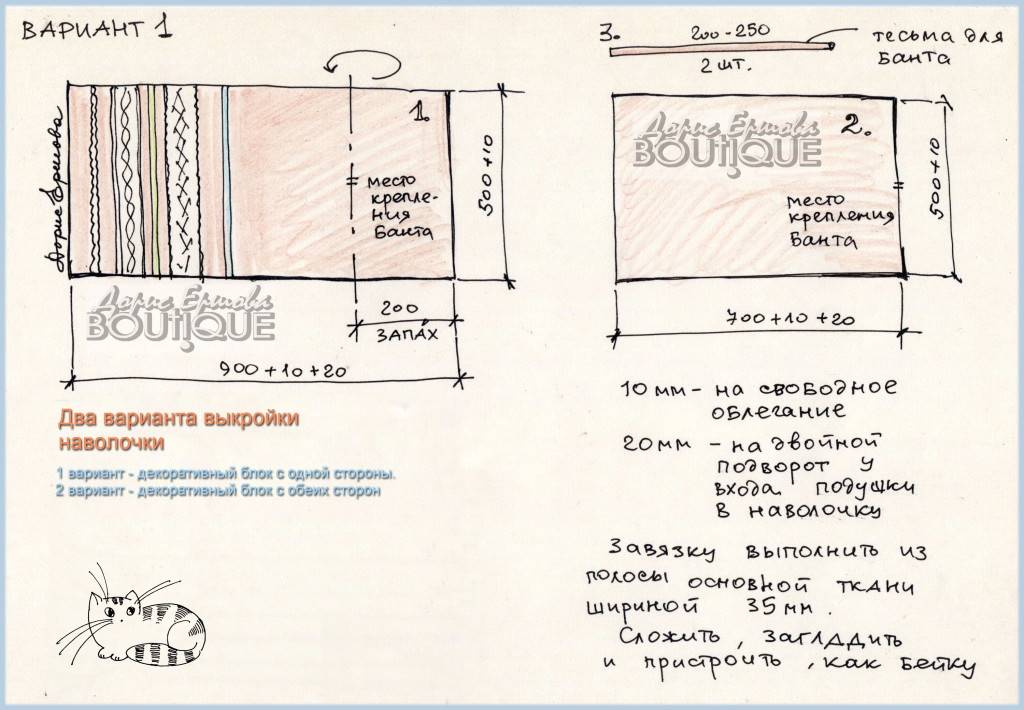 ВАРИАНТ 1
1.
место
крепле-
ния
банта
500+10
Дорис Ершова
Дорис Ершова
BOUTIQUE
200
ЗАПАХ
900+10+20
Два варианта выкройки
наволочки
1 вариант - декоративный блок с одной стороны.
2 вариант - декоративный блок с обеих сторон
3.
200-250
2 шт.
тесьма для
банта
Дорис Ершова
BOUTIQUE
2.
место
крепления
банта
500+10
700+10+20
10 мм - на свободное
облегание
20мм - на двойной
подворот у
входа подушки
в наволочку
Завязку выполнить из
полосы основной ткани
шириной 35 мм.
Сложить, загладить
и пристроить, как бейку